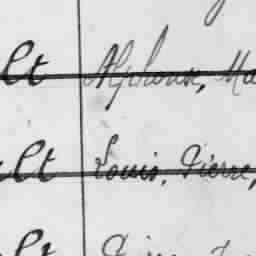 lt Alphonse, Ma
lt Louis, Pierre,
lt